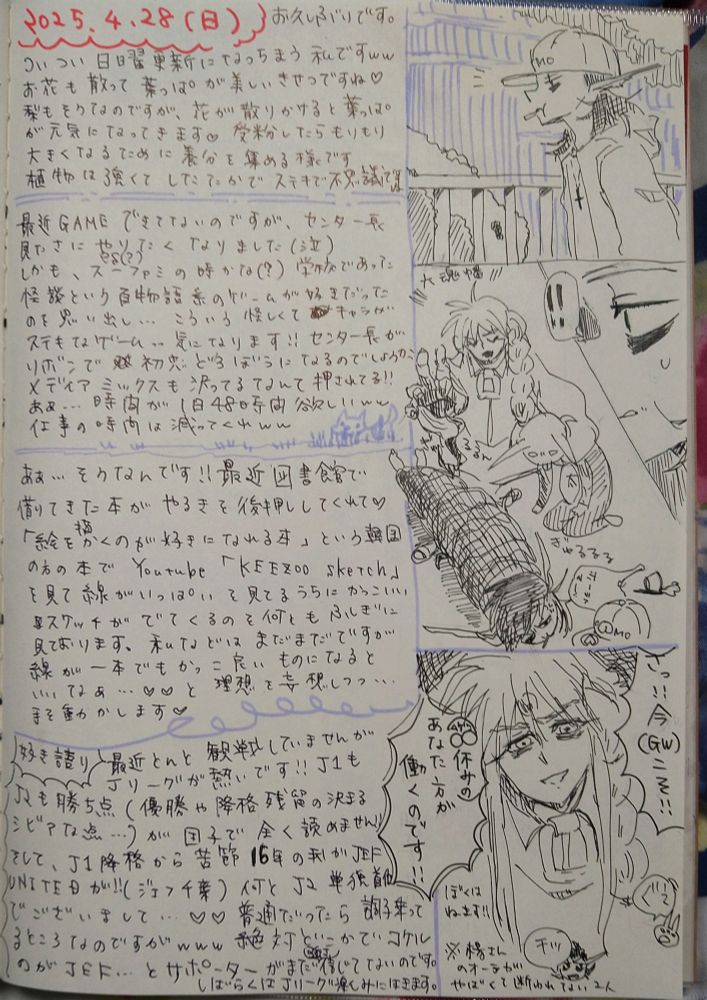 2025.4.28(日)
お久しぶりです。
ついつい日曜更新になっちまう私ですww
お花も散って葉っぱが美しいきせつですね♡
梨もそうなのですが、花が散りかけると葉っぱ
が元気になってきます♡受粉したらもりもり
大きくなるために養分を集める様です
植物は強くてしたたかでステキで不思議です
最近GAMEできてないのですが、センター長
見たさにやりたくなりました(泣)
しかも、スーファミの時かな(?)学校であった
怪談という百物語系のゲームが好きだった
のを思い出し…こういう怪しくてキャラが
ステキなゲーム…気になります!!センター長が
リボンで初恋どろぼうになるのでしょうか
メディアミックスも決ってるなんて押されてる!!
あぁ…時間が1日48時間欲しいww
仕事の時間は減ってくれww
あぁ…そうなんです!!最近図書館で
借りてきた本がやるきを後押ししてくれて♡
「絵を描くのが好きになれる本」という韓国
の方の本でYoutube「KEEZOO sketch」
を見て線がいっぱいを見てるうちにかっこいい
スケッチがでてくるのを何ともふしぎに
見ております。私などはまだまだですが
線が一本でもかっこ良いものになると
いいなぁ…♡♡と理想を妄想しつつ…
手を動かします♡
好き語り
最近とんと観戦していませんが
Jリーグが熱いです!!J1も
J2も勝ち点(優勝や降格残留の決まる
シビアな点…)が団子で全く読めません!!
そして、J1降格から苦節16年の我がJEF
UNITEDが!!(ジェフ千葉)何とJ2単独首位
でございまして…♡♡普通だったら調子乗って
るところなのですがwww絶対どこかでコケル
のがJEF…とサポーターがまだ信じてないのです。
しばらくはJリーグ楽しみにはきます。
MO
大魂幡
るんるん
ぎゅるるる
MO
さっ!!今
(GW)こそ!!!
休みの
あなた方が
働くのです!!!
ぼくは
ねます!!
ぐー
チッ
※楊さん
のオーラが
やばくて断われない2人